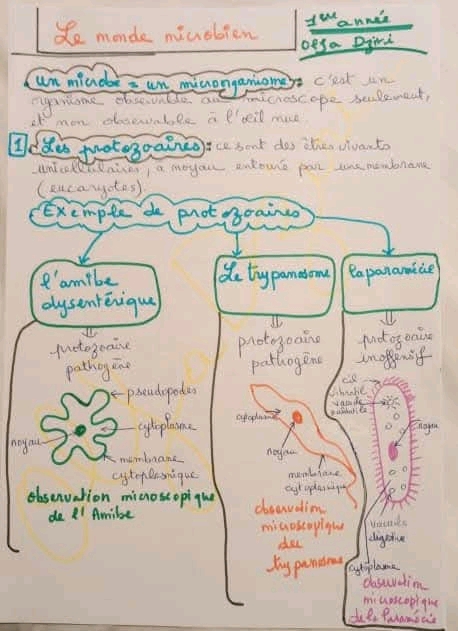 Le monde microbien
1ère année
Olfa Dziri
un microbe = un microorganisme : c'est un
organisme observable au microscope seulement,
et non observable à l'œil nue.
1 Les protozoaires : ce sont des êtres vivants
unicellulaires, à noyau entouré par une membrane
(eucaryotes).
Exemple de protozoaires
l'amibe
dysentérique
protozoaire
pathogène
pseudopodes
cytoplasme
noyau
membrane
cytoplasmique
observation microscopique
de l'Amibe
Le trypanosome
protozoaire
pathogène
cytoplasme
noyau
membrane
cytoplasmique
observation
microscopique
du
trypanosome
la paramécie
protozoaire
inoffensif
cil
vibratil
vacuole
pulsatile
noyau
vacuole
digestive
cytoplasme
observation
microscopique
de la Paramécie